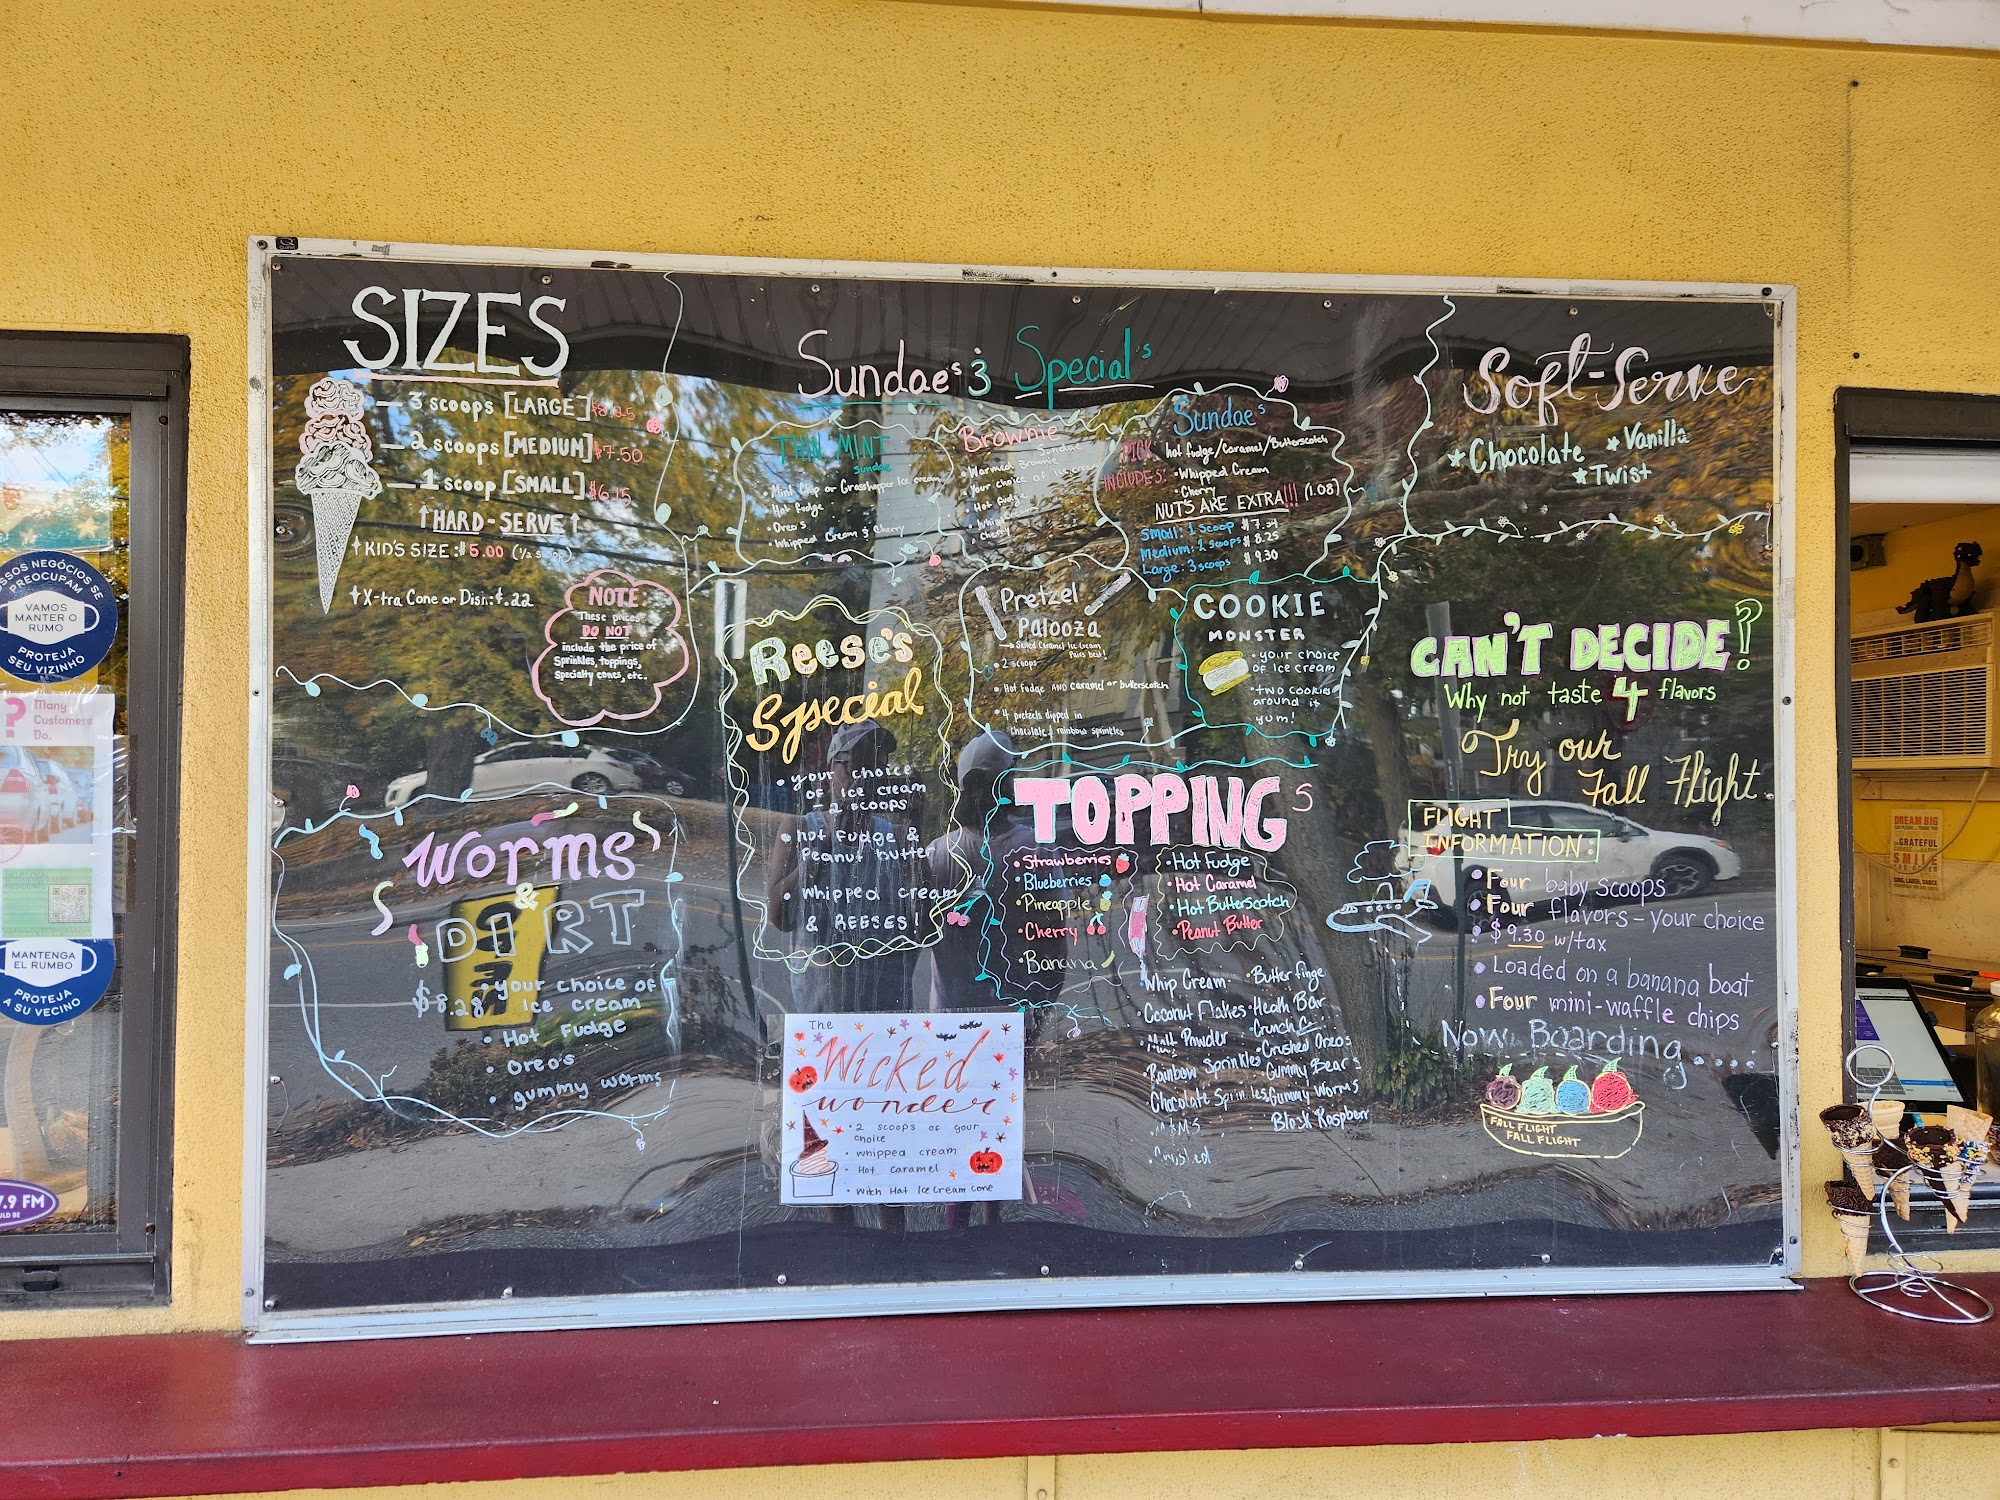 SIZES
3 scoops [LARGE] $8.25
2 scoops [MEDIUM] $7.50
1 scoop [SMALL] $6.15
HARD-SERVE
KID'S SIZE: $5.00 (1/2 scoop)
X-tra Cone or Dish: $.22
NOTE:
These prices
DO NOT
include the price of
Sprinkles, toppings,
Specialty cones, etc.
Worms
&
DIRT
$8.28
• your choice of
Ice cream
• Hot Fudge
• Oreo's
• gummy worms
Sundae's & Special's
THIN MINT
Sundae
• Mint Chip or Grasshopper Ice cream
• Hot fudge
• Oreo's
• Whipped Cream & Cherry
Brownie
Sundae
• Warmed Brownie
• Your choice of Ice cream
• Hot fudge
• Whip
• Cherry
Sundae's
PICK hot fudge/Caramel/Butterscotch
INCLUDES: • Whipped Cream
• Cherry
NUT'S ARE EXTRA!!! (1.08)
Small: 1 Scoop $7.24
Medium: 2 scoops $8.25
Large: 3 scoops $9.30
REESE'S
Special
• your choice
of Ice cream
- 2 scoops
• hot fudge &
Peanut butter
• whipped cream
& REESES!
Pretzel
Palooza
Salted Caramel Ice Cream
Pairs best!
• 2 scoops
• Hot fudge AND caramel or butterscotch
• 4 pretzels dipped in
chocolate & rainbow sprinkles
COOKIE
MONSTER
• your choice
of Ice cream
• two cookies
around it
yum!
TOPPINGS
• Strawberries
• Blueberries
• Pineapple
• Cherry
• Banana
• Hot Fudge
• Hot Caramel
• Hot Butterscotch
• Peanut Butter
Whip Cream
Coconut Flakes
• Malt Powder
• Rainbow Sprinkles
Chocolate Sprinkles
• M&M's
• Crushed
• Butter finge
• Heath Bar
• Crunch
• Crushed Oreo's
• Gummy Bear's
Gummy Worms
Black Raspberr
The
Wicked
wonder
• 2 scoops of your
choice
• whipped cream
• Hot caramel
• Witch Hat Ice cream cone
Soft-Serve
*Chocolate *Vanilla
*Twist
CAN'T DECIDE?
Why not taste 4 flavors
Try our
Fall Flight
FLIGHT
INFORMATION:
• Four baby scoops
• Four flavors - your choice
• $9.30 w/tax
• Loaded on a banana boat
• Four mini-waffle chips
Now Boarding....
FALL FLIGHT
FALL FLIGHT
SSOS NEGÓCIOS SE
PREOCUPAM
VAMOS
MANTER O
RUMO
PROTEJA
SEU VIZINHO
? Many
Customers
Do.
MANTENGA
EL RUMBO
PROTEJA
A SU VECINO
7.9 FM
DREAM BIG
GRATEFUL
SMILE